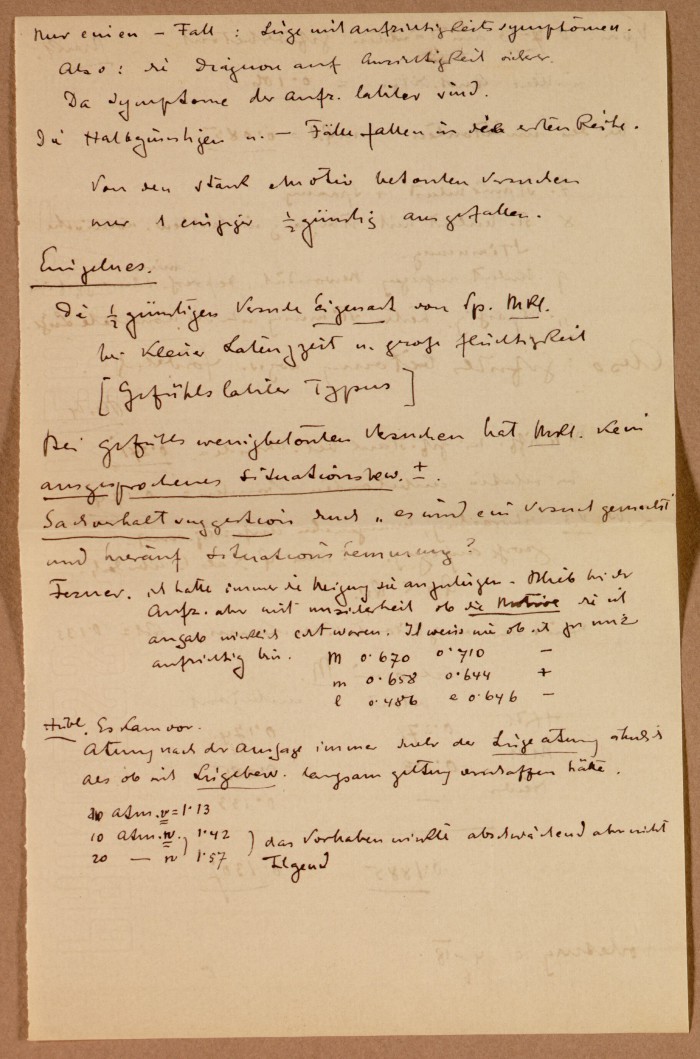 Nur einen – Fall : Lüge mit Aufrichtigkeitssymptomen.
Also : die Diagnose auf Aufrichtigkeit sicher.
Da Symptome der Aufr. labiler sind.
Die Halbgünstigen u. – Fälle fallen in die ersten Reihe.
Von den stark emotiv betonten Versuchen
nur 1 einziger ½ günstig ausgefallen.
Einzelnes.
Die ½ günstigen Versuche Eigenart von Sp. MRl.
bei kleiner Latenzzeit u. große Flüchtigkeit
[Gefühls labiler Typus]
Bei gefühls wenigbetonten Versuchen hat MRl. kein
ausgesprochenes Situationsbew. ±.
Sachverhaltsuggestion durch „es wird ein Versuch gemacht"
und hierauf Situations hemmung?
Ferner. ich hatte immer die Neigung sie anzulügen. Blieb bei der
Aufr. aber mit Unsicherheit ob die Motive die ich
angab wirklich echt waren. Ich weiss nie ob ich ganz
aufrichtig bin. M 0·670 0·710 –
m 0·658 0·644 +
l 0·486 e 0·646 –
Hübl. Es kam vor.
Atmung nach der Aussage immer mehr der Lügeatmung ähnlich
als ob sich Lügebew. langsam geltung verschaffen hätte.
10 Atm. v = 1·13
10 Atm. n. 1·42
20 — n 1·57 ) das Vorhaben wirkte abschwächend aber nicht
tilgend